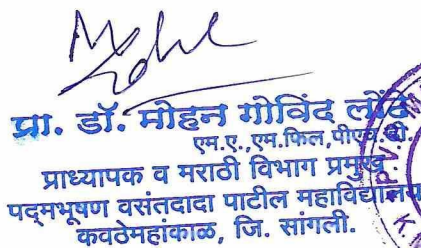 प्रा. डॉ. मोहन गोविंद लोंढे
एम.ए.,एम.फिल,पीएच.डी.
प्राध्यापक व मराठी विभाग प्रमुख
पद्मभूषण वसंतदादा पाटील महाविद्यालय
कवठेमहांकाळ, जि. सांगली.
P.V.